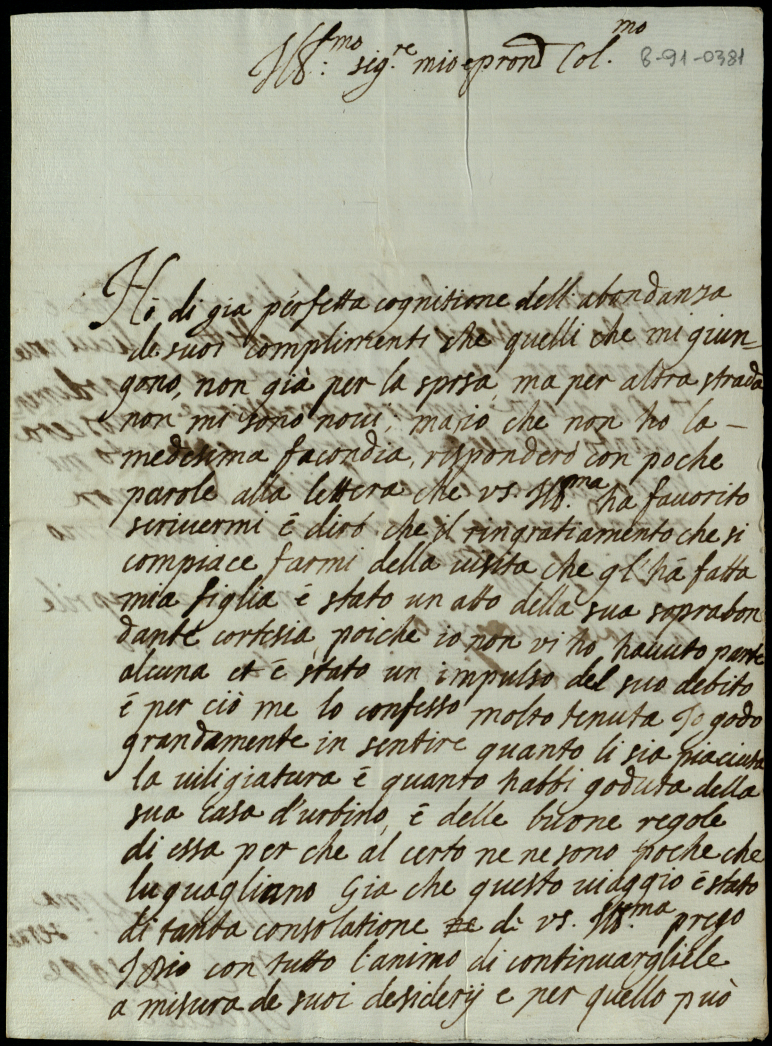 Ill:mo sig.re mio e pron Col.mo 8-91-0381
Hò di gia perfetta cognitione dell'abondanza
de suoi complimenti che quelli che mi giun-
gono, non già per la sposa, ma per altra strada
non mi sono novi, mà io che non ho la -
medesima facondia, risponderò con poche
parole alla lettera che vs. Ill.ma ha favorito
scrivermi è dirò che il ringratiamento che si
compiace farmi della visita che gl'hà fatta
mia figlia è stato un atto della sua soprabon
dante cortesia, poiche io non vi ho havuto parte
alcuna et è stato un impulso del suo debito
è per ciò me lo confesso molto tenuta Io godo
grandamente in sentire quanto li sia piaciuta
la viligiatura è quanto habbi goduta della
sua Casa d'urbino, è delle buone regole
di essa per che al certo ne ne sono poche che
luguagliano Gia che questo viaggio è stato
di tanta consolatione di vs. Ill.ma prego
Idio con tutto l'animo di continuargliele
a misura de suoi desiderij e per quello può